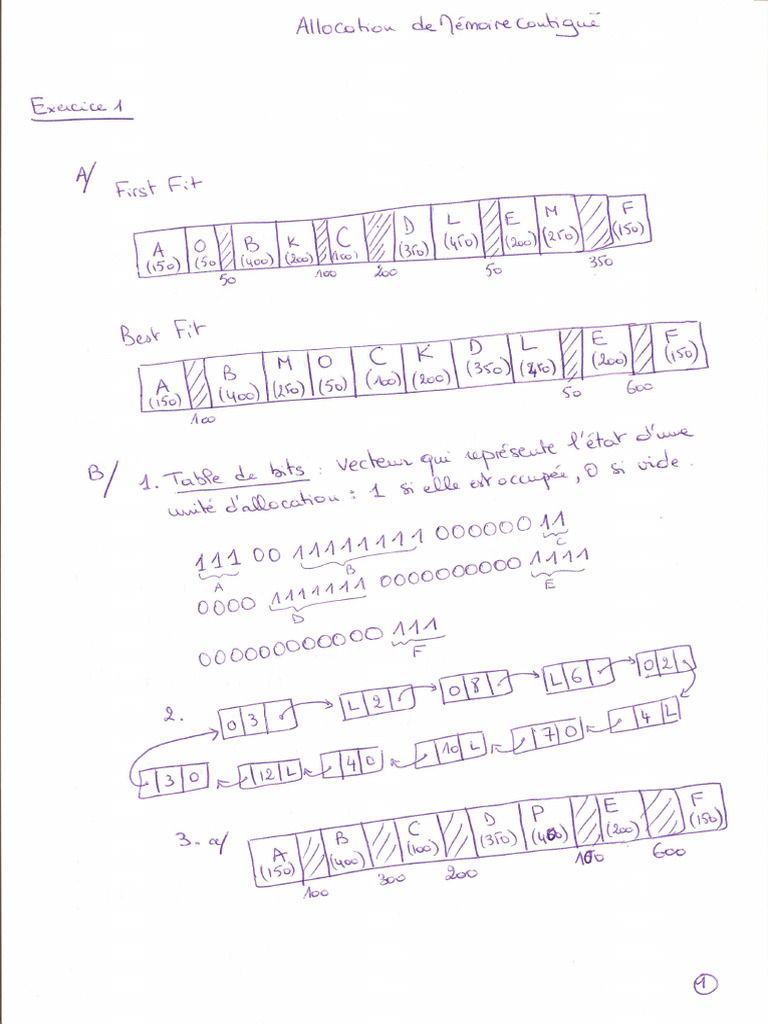 Allocation de Mémoire contiguë
Exercice 1
A/ First Fit
A O B K C D L E M F
(150) (50 (400) (200) (100) (350) (450) (200) (250) (150)
50 100 200 50 350
Best Fit
A B M O C K D L E F
(150) (400) (250) (50) (100) (200) (350) (450) (200) (150)
100 50 600
B/ 1. Table de bits : vecteur qui représente l'état d'une
unité d'allocation : 1 si elle est occupée, 0 si vide.
111 00 11111111 000000 11
A B C
0000 1111111 0000000000 1111
D E
000000000000 111
F
2. O 3 L 2 O 8 L 6 O 2
3 O 12 L 4 O 10 L 7 O 4 L
3. a/ A B C D P E F
(150) (400) (100) (350) (400) (200) (150)
100 300 200 100 600
1